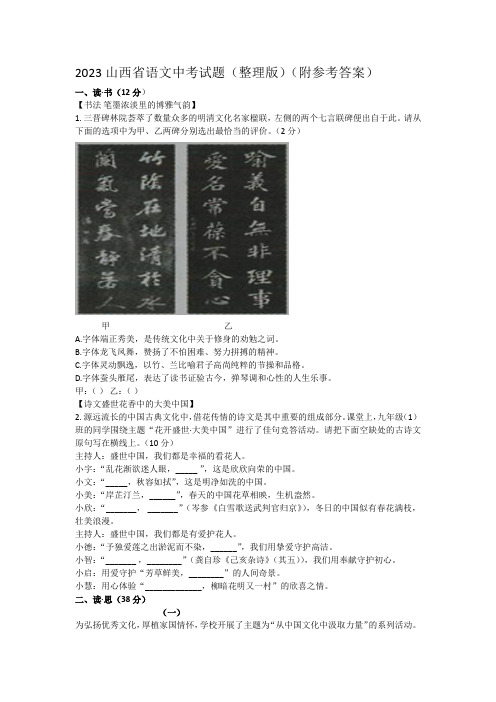 2023 山西省语文中考试题（整理版）（附参考答案）
一、读·书（12 分）
【书法 笔墨浓淡里的博雅气韵】
1. 三晋碑林院荟萃了数量众多的明清文化名家楹联，左侧的两个七言联碑便出自于此。请从
下面的选项中为甲、乙两碑分别选出最恰当的评价。（2 分）
竹陰在地清於水
蘭氣當春靜若人
喻義自無非理事
愛名常葆不貪心
甲 乙
A.字体端正秀美，是传统文化中关于修身的劝勉之词。
B.字体龙飞凤舞，赞扬了不怕困难、努力拼搏的精神。
C.字体灵动飘逸，以竹、兰比喻君子高尚纯粹的节操和品格。
D.字体蚕头雁尾，表达了读书证验古今，弹琴调和心性的人生乐事。
甲：（ ）乙：（ ）
【诗文盛世花香中的大美中国】
2. 源远流长的中国古典文化中，借花传情的诗文是其中重要的组成部分。课堂上，九年级（1）
班的同学围绕主题“花开盛世·大美中国”进行了佳句竞答活动。请把下面空缺处的古诗文
原句写在横线上。（10 分）
主持人：盛世中国，我们都是幸福的看花人。
小宇：“乱花渐欲迷人眼，_____ ”，这是欣欣向荣的中国。
小文：“_____，秋容如拭”，这是明净如洗的中国。
小美：“岸芷汀兰，______”，春天的中国花草相映，生机盎然。
小欣：“_______， _______”（岑参《白雪歌送武判官归京》），冬日的中国似有春花满枝，
壮美浪漫。
主持人：盛世中国，我们都是有爱护花人。
小德：“予独爱莲之出淤泥而不染，______”，我们用挚爱守护高洁。
小智：“_______ ，________”（龚自珍《己亥杂诗》（其五）），我们用奉献守护初心。
小启：用爱守护“芳草鲜美，________”的人间奇景。
小慧：用心体验“_____________，柳暗花明又一村”的欣喜之情。
二、读·思（38 分）
（一）
为弘扬优秀文化，厚植家国情怀，学校开展了主题为“从中国文化中汲取力量”的系列活动。